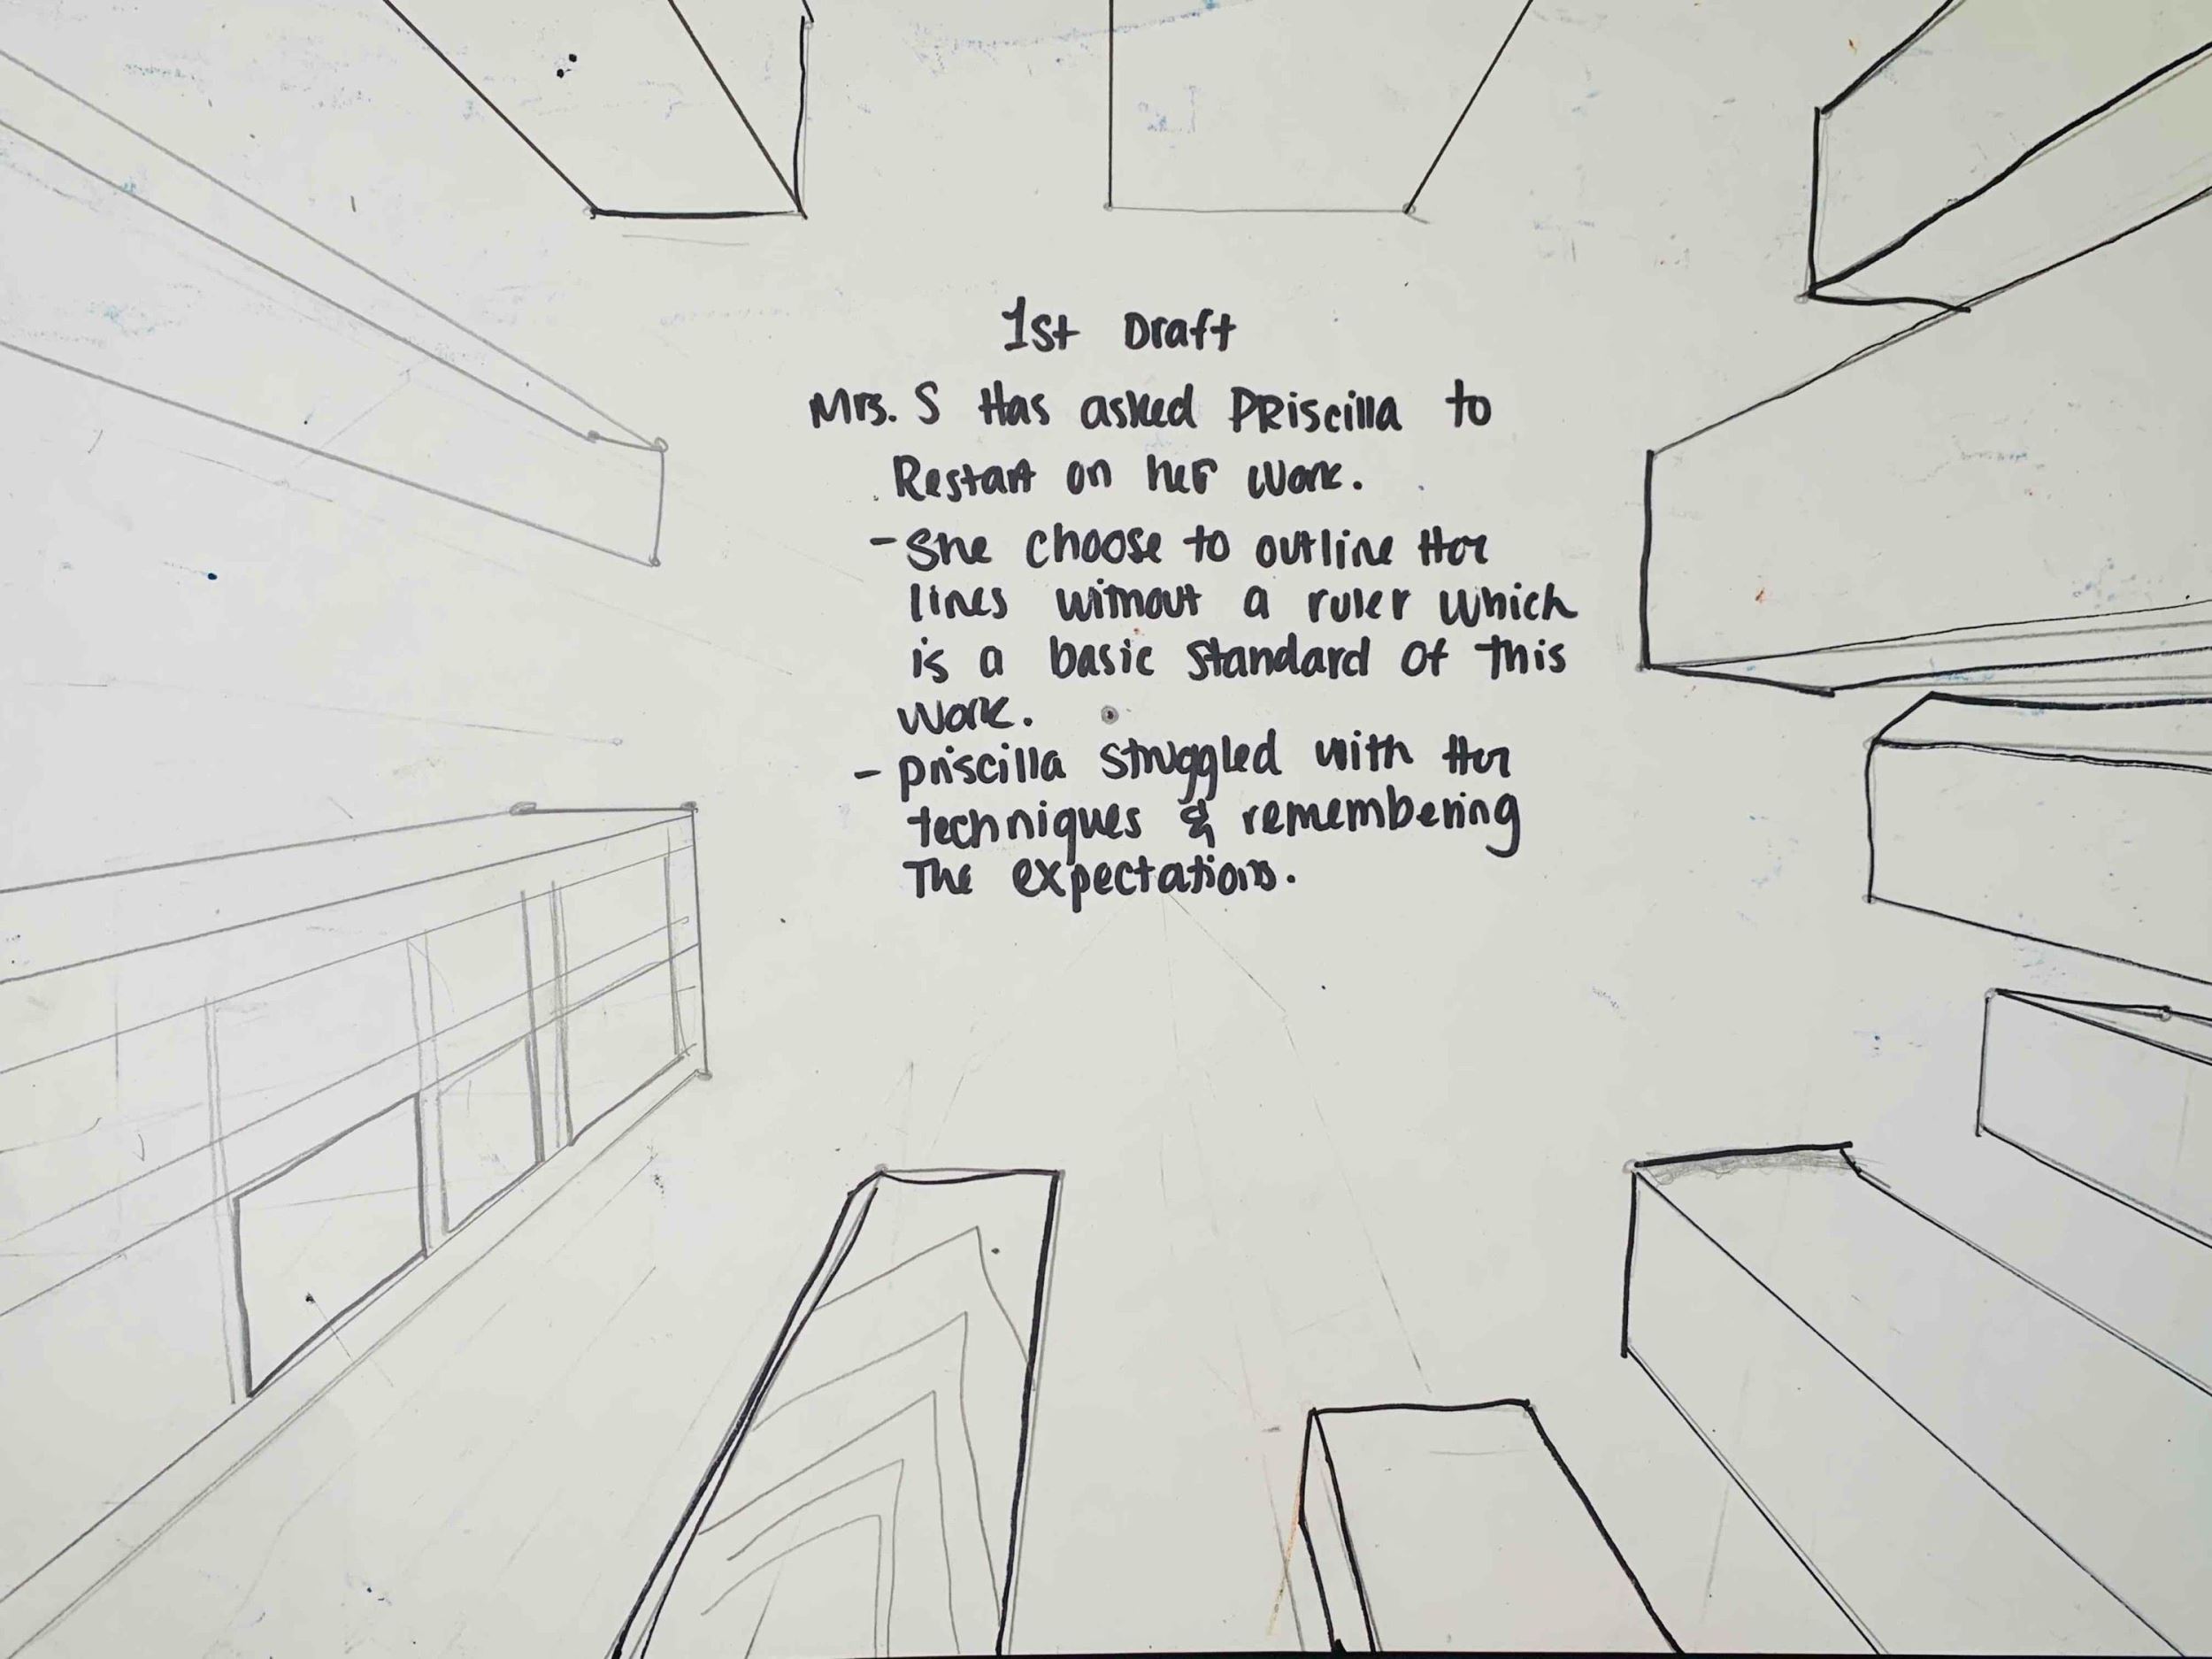 1st Draft
Mrs. S Has asked PRiscilla to
Restart on her work.
- She choose to outline Her
lines without a ruler which
is a basic standard of this
work.
- priscilla struggled with Her
techniques & remembering
The expectations.